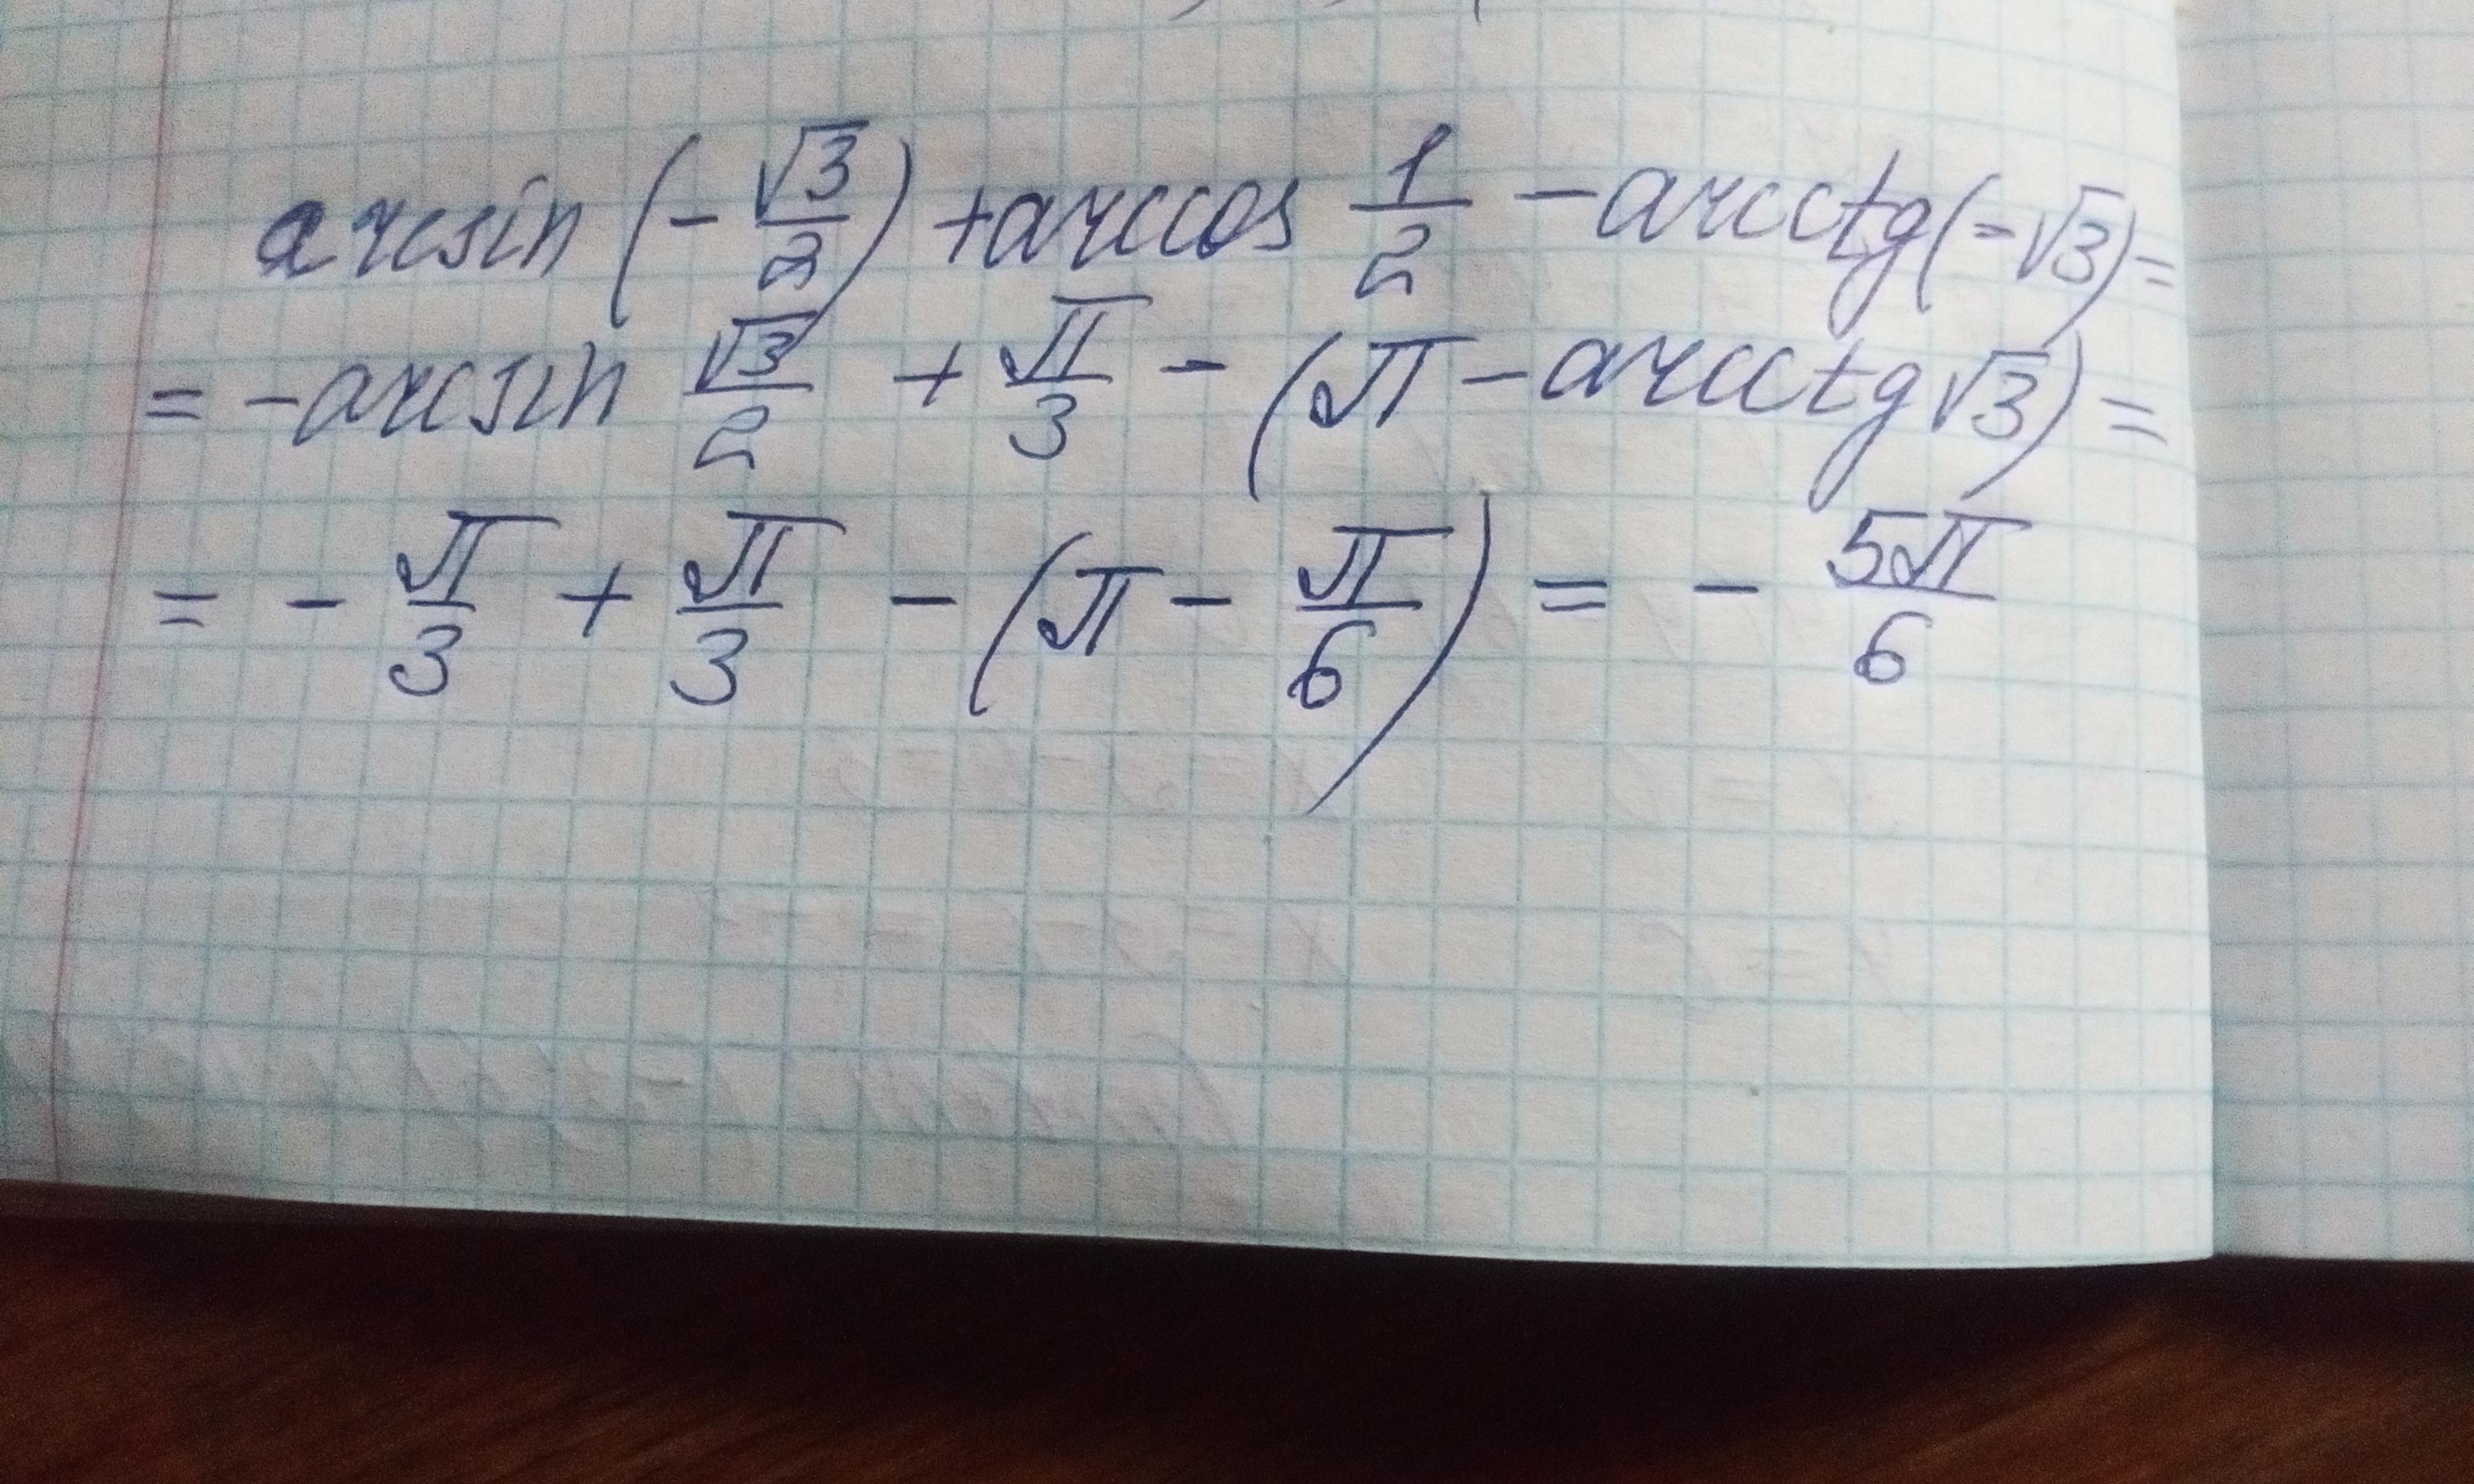 arcsin (-√3/2) + arccos 1/2 - arcctg(-√3) =
= -arcsin √3/2 + π/3 - (π - arcctg √3) =
= - π/3 + π/3 - (π - π/6) = - 5π/6